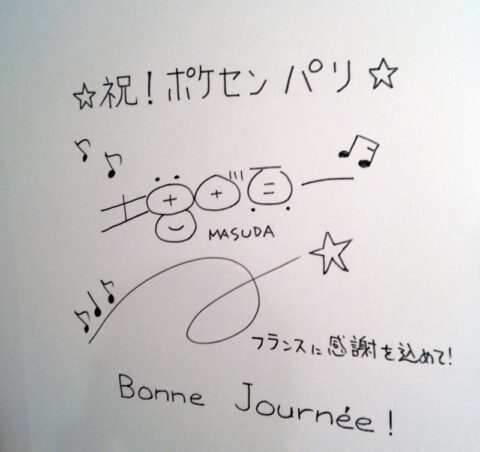 ☆祝!ポケセンパリ☆
MASUDA
フランスに感謝を込めて!
Bonne Journée!